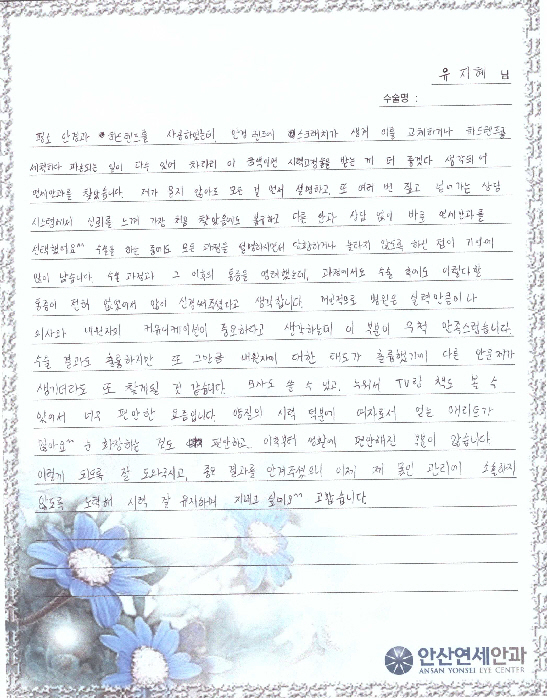 유지혜 님
수술명 :
평소 안경과 하드렌즈를 사용하였는데, 안경 렌즈에 스크래치가 생겨 이를 교체하거나 하드렌즈를
세척하다 파손되는 일이 다수 있어 차라리 이 금액이면 시력교정술을 받는 게 더 좋겠다 생각되어
연세안과를 찾았습니다. 제가 묻지 않아도 모든 걸 먼저 설명하고, 또 여러 번 짚고 넘어가는 상담
시스템에서 신뢰를 느껴 가장 처음 찾았음에도 불구하고 다른 안과 상담 없이 바로 연세안과를
선택했어요^^ 수술을 하는 중에도 모든 과정을 설명하시면서 당황하거나 놀라지 않도록 하신 점이 기억에
많이 남습니다. 수술 과정과 그 이후의 통증을 염려했는데, 과정에서도 수술 후에도 이렇다할
통증이 전혀 없었어서 많이 신경써주셨다고 생각합니다. 개인적으로 병원은 실력만큼이나
의사와 내원자의 커뮤니케이션이 중요하다고 생각하는데 이 부분이 무척 만족스럽습니다.
수술 결과도 훌륭하지만 또 그만큼 내원자에 대한 태도가 훌륭했기에 다른 안운저가
생기더라도 또 찾게될 것 같습니다. 모자도 쓸 수 있고, 누워서 TV랑 책도 볼 수
있어서 너무 편안한 요즘입니다. 양질의 시력 덕분에 여자로서 얻는 메리트가
많아요^^ 눈 화장하는 점도 편안하고, 이후부터 생활에 편안해진 부분이 많습니다
이렇게 되도록 잘 도와주시고, 좋은 결과를 안겨주셨으니 이제 제 몫인 관리에 소홀하지
않도록 노력해 시력 잘 유지하며 지내고 싶네요^^ 고맙습니다.
안산연세안과
ANSAN YONSEI EYE CENTER